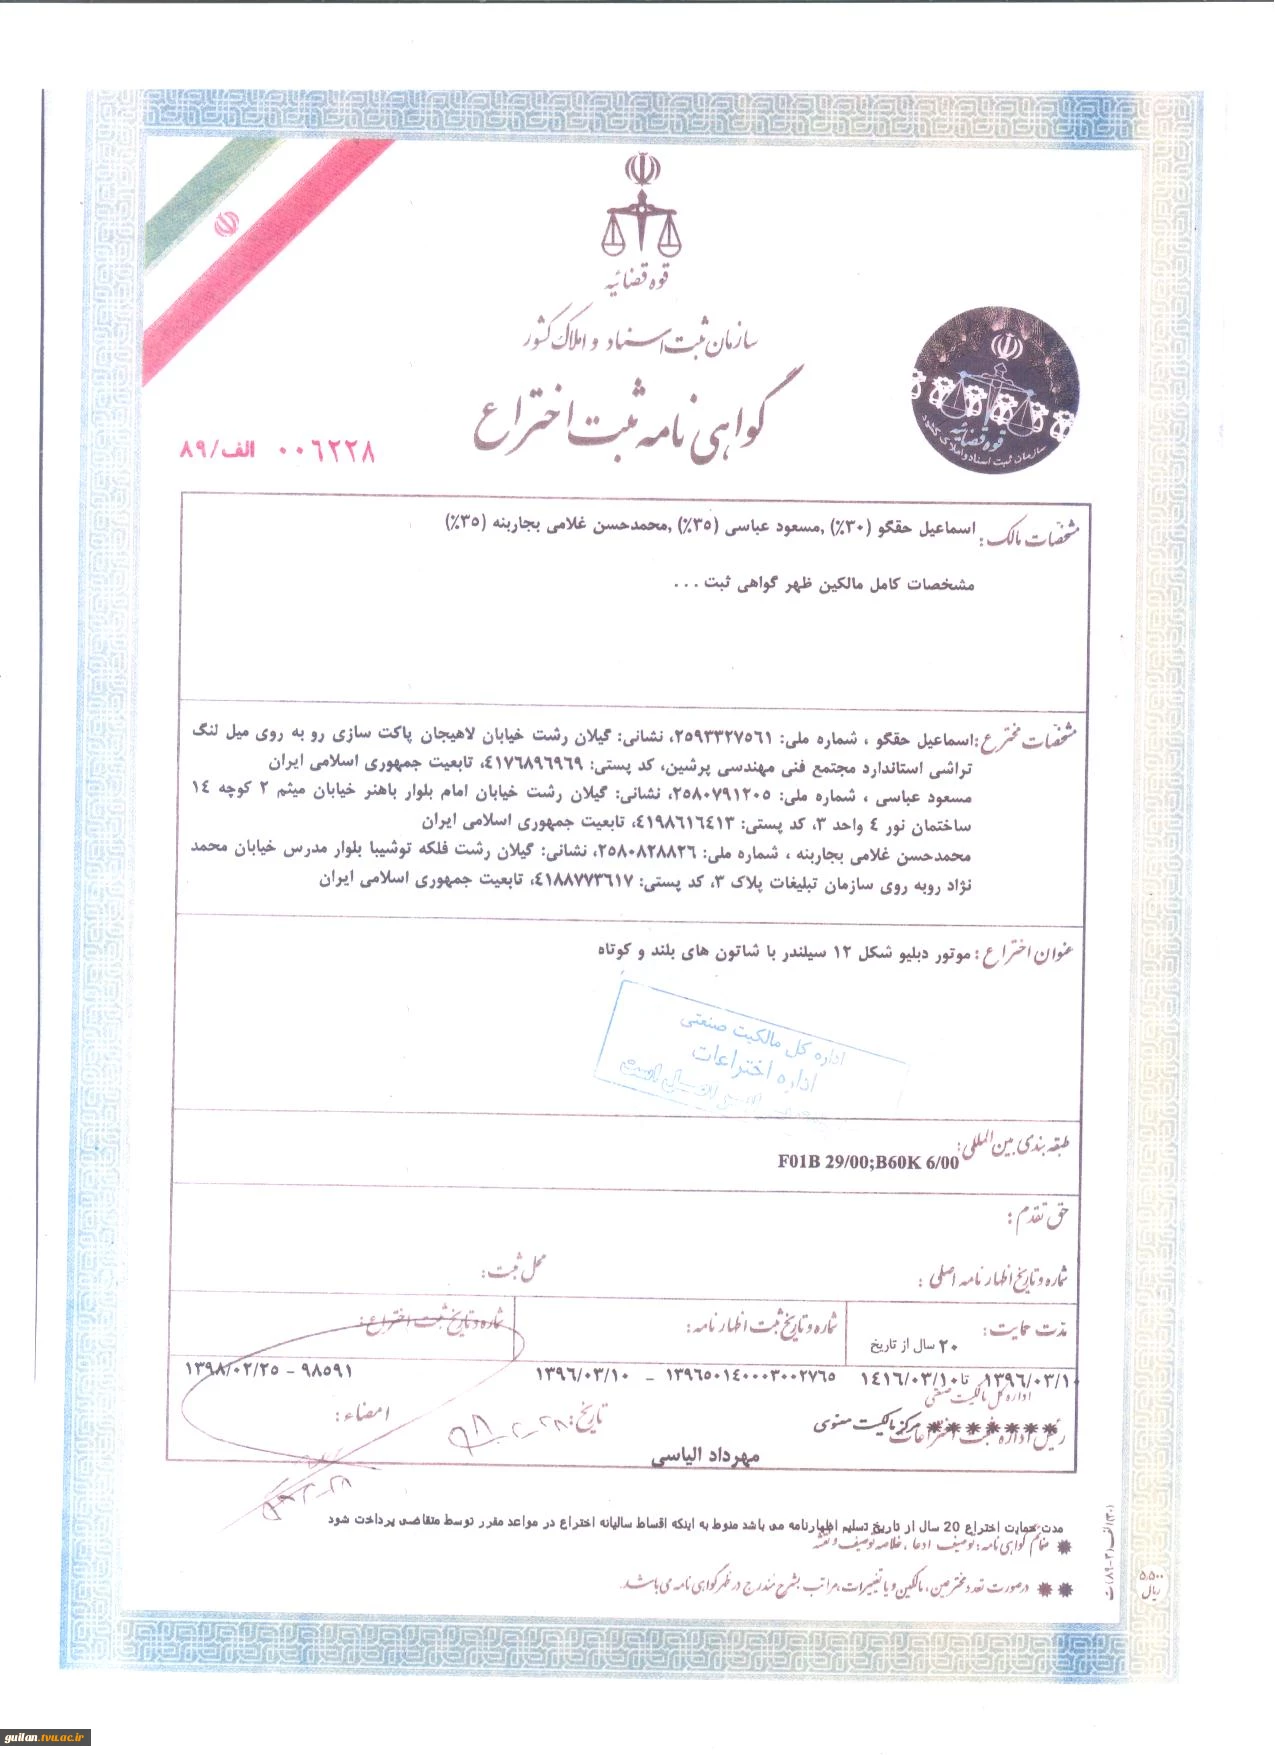 قوه قضائیه
سازمان ثبت اسناد و املاک کشور
گواهی نامه ثبت اختراع
۰۰۶۲۲۸ الف/۸۹
قوه قضائیه
سازمان ثبت اسناد و املاک کشور
مشخصات مالک: اسماعیل حقگو (۳۰٪) ,مسعود عباسی (۳۵٪) ,محمدحسن غلامی بجاربنه (۳۵٪)
مشخصات کامل مالکین ظهر گواهی ثبت ...
مشخصات مخترع: اسماعیل حقگو ، شماره ملی: ۲۵۹۳۳۲۷۵۶۱، نشانی: گیلان رشت خیابان لاهیجان پاکت سازی رو به روی میل لنگ
تراشی استاندارد مجتمع فنی مهندسی پرشین، کد پستی: ۴۱۷۶۸۹۶۹۶۹، تابعیت جمهوری اسلامی ایران
مسعود عباسی ، شماره ملی: ۲۵۸۰۷۹۱۲۰۵، نشانی: گیلان رشت خیابان امام بلوار باهنر خیابان میثم ۲ کوچه ۱۴
ساختمان نور ۴ واحد ۳، کد پستی: ۴۱۹۸۶۱۶۴۱۳، تابعیت جمهوری اسلامی ایران
محمدحسن غلامی بجاربنه ، شماره ملی: ۲۵۸۰۸۲۸۸۲۶، نشانی: گیلان رشت فلکه توشیبا بلوار مدرس خیابان محمد
نژاد روبه روی سازمان تبلیغات پلاک ۳، کد پستی: ۴۱۸۸۷۷۳۶۱۷، تابعیت جمهوری اسلامی ایران
عنوان اختراع: موتور دبلیو شکل ۱۲ سیلندر با شاتون های بلند و کوتاه
اداره کل مالکیت صنعتی
اداره اختراعات
طبقه بندی بین المللی:
F01B 29/00;B60K 6/00
حق تقدم:
شماره و تاریخ اظهار نامه اصلی: محل ثبت:
مدت حمایت: شماره و تاریخ ثبت اظهار نامه: شماره و تاریخ ثبت اختراع:
۲۰ سال از تاریخ
۱۳۹۶/۰۳/۱۰ تا ۱۴۱۶/۰۳/۱۰ ۱۳۹۶۵۰۱۴۰۰۰۳۰۰۲۷۶۵ – ۱۳۹۶/۰۳/۱۰ ۹۸۵۹۱ – ۱۳۹۸/۰۲/۲۵
اداره کل مالکیت صنعتی
رئیس اداره ثبت اختراعات مرکز مالکیت معنوی تاریخ: امضاء:
مهرداد الیاسی
مدت حمایت اختراع 20 سال از تاریخ تسلیم اظهارنامه می باشد منوط به اینکه اقساط سالیانه اختراع در مواعد مقرر توسط متقاضی پرداخت شود
ضمائم گواهی نامه: توصیف، ادعا، خلاصه توصیف و نقشه
درصورت تعدد مخترعین، مالکین و یا تغییرات، مراتب بشرح مندرج در ظهر گواهی نامه می باشد.
۵،۵۰۰
ریال
guilan.tvu.ac.ir